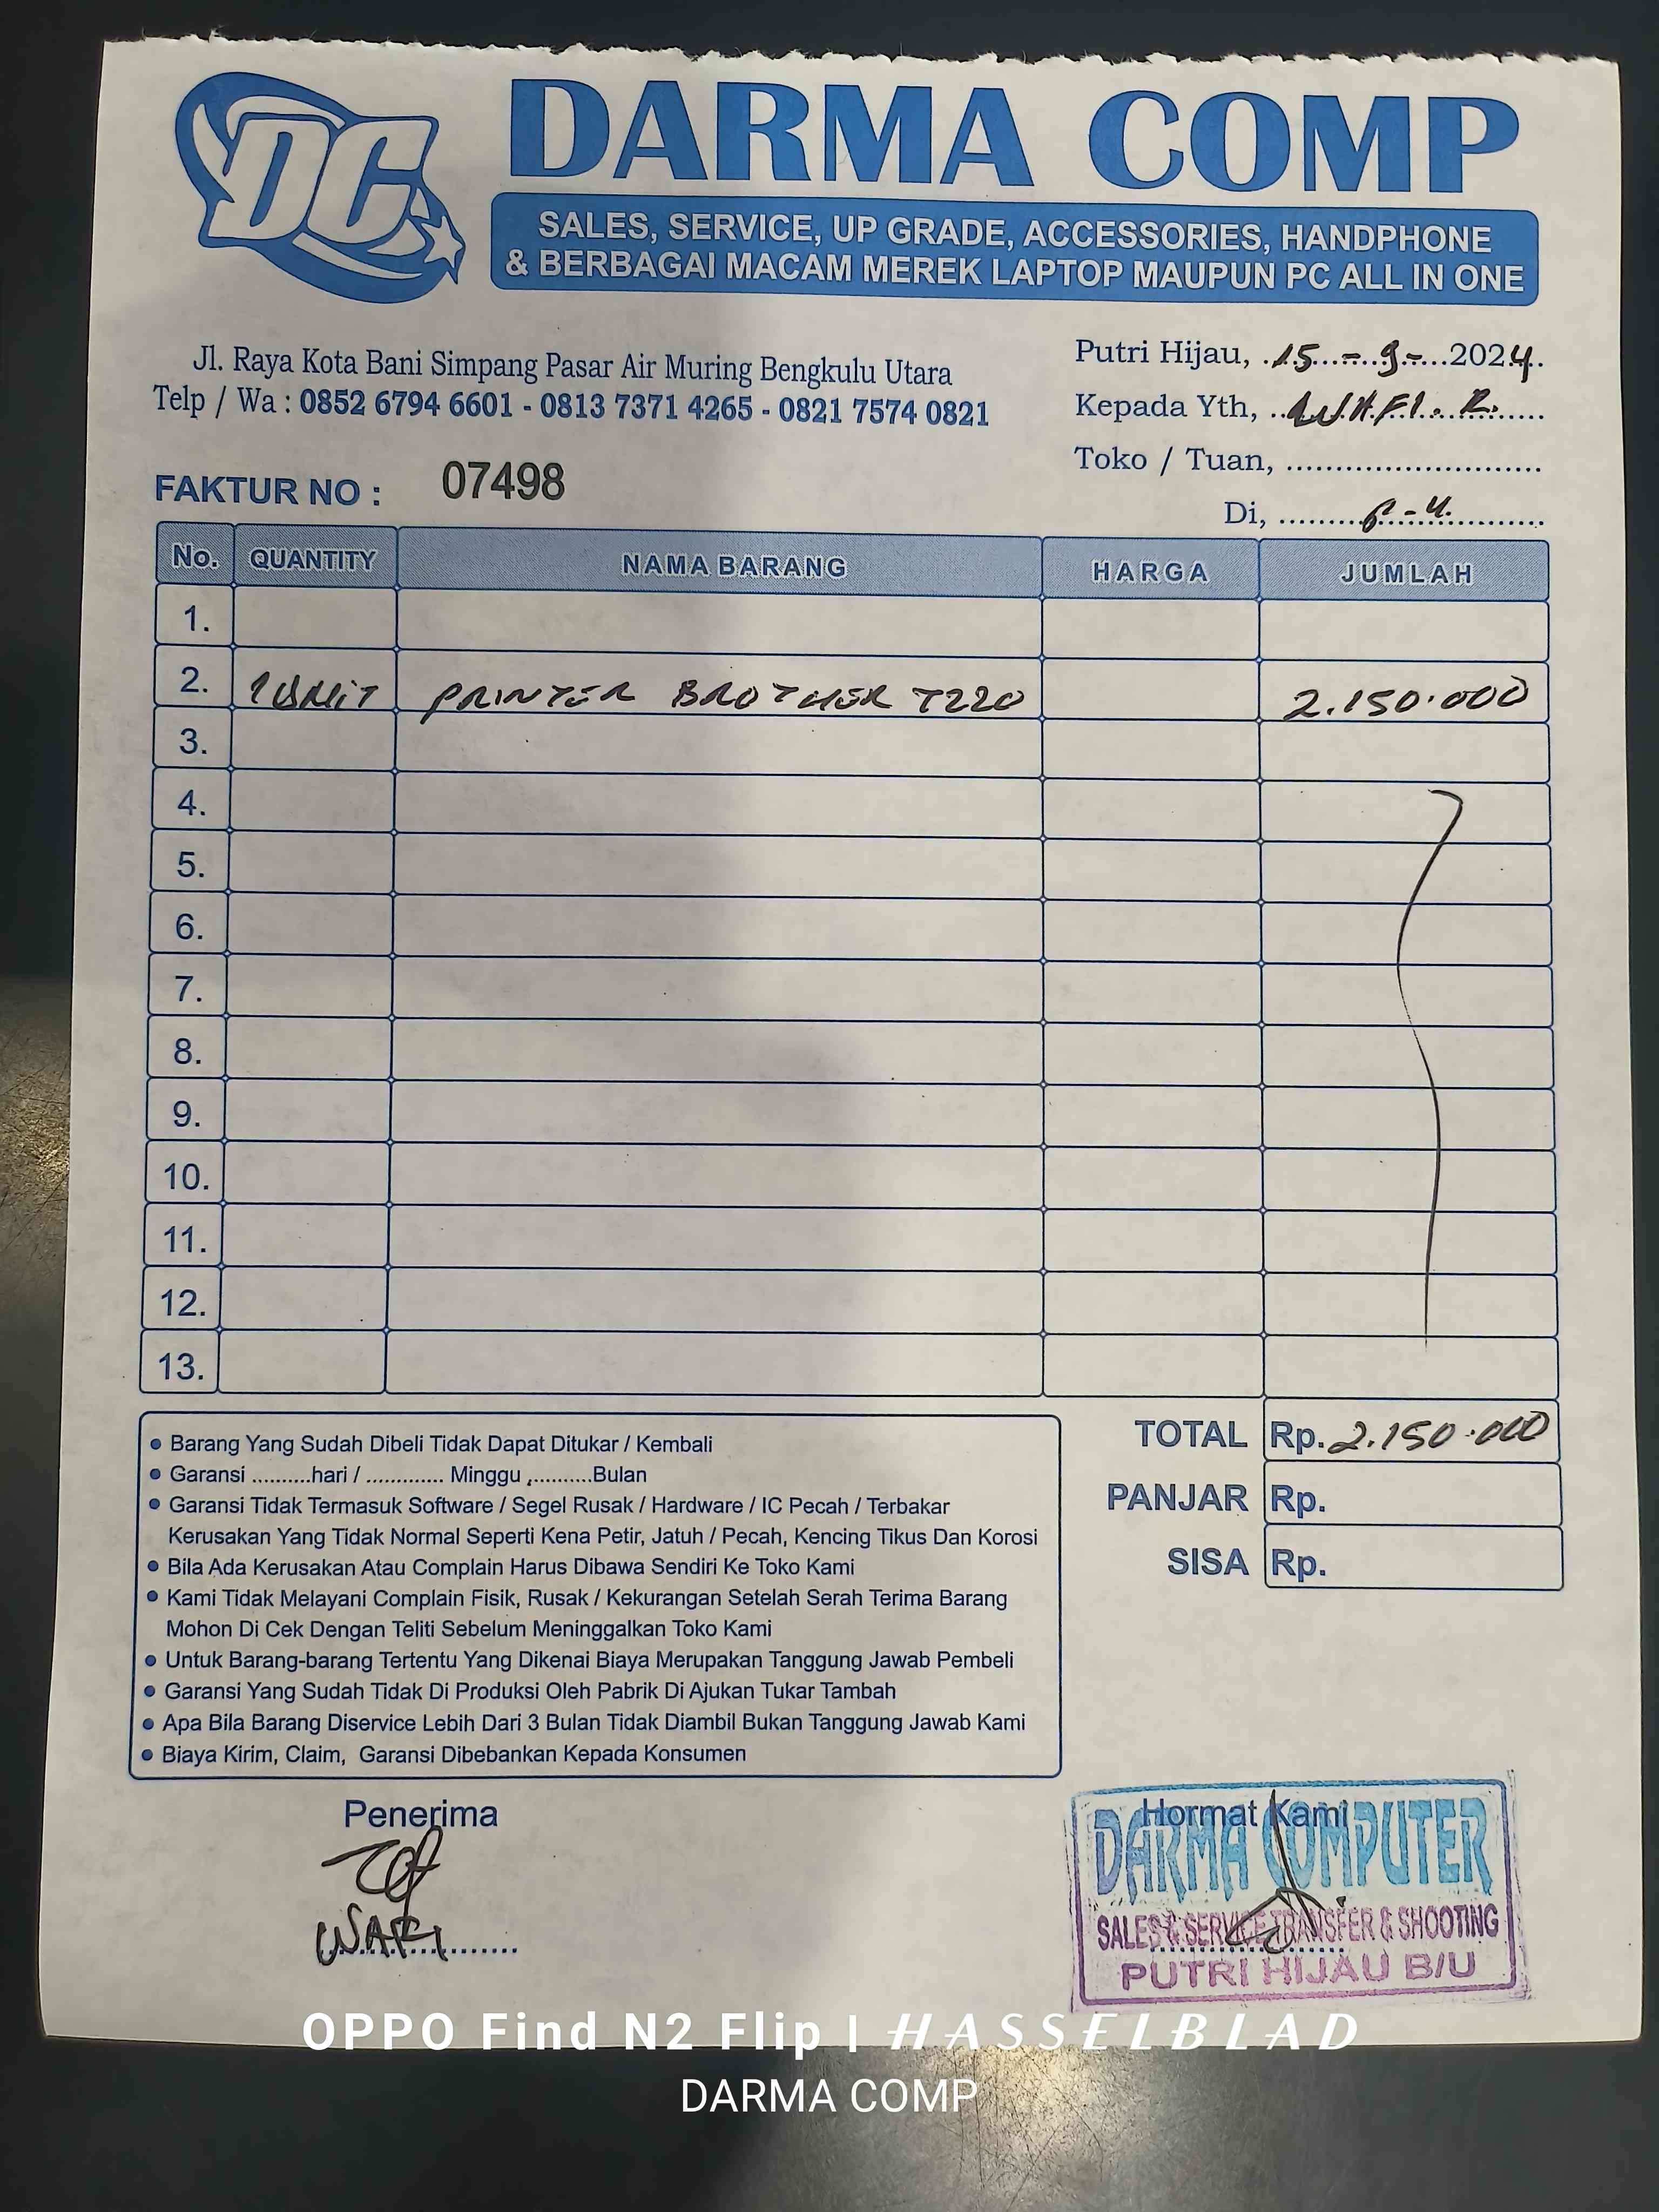 DC
DARMA COMP
SALES, SERVICE, UP GRADE, ACCESSORIES, HANDPHONE
& BERBAGAI MACAM MEREK LAPTOP MAUPUN PC ALL IN ONE
Jl. Raya Kota Bani Simpang Pasar Air Muring Bengkulu Utara
Telp / Wa : 0852 6794 6601 - 0813 7371 4265 - 0821 7574 0821
Putri Hijau, 15 - 9 - 2024
Kepada Yth,
Toko / Tuan,
Di,
FAKTUR NO : 07498
No. QUANTITY NAMA BARANG HARGA JUMLAH
1.
2. 1 UNIT PRINTER BROTHER T220 2.150.000
3.
4.
5.
6.
7.
8.
9.
10.
11.
12.
13.
TOTAL Rp. 2.150.000
PANJAR Rp.
SISA Rp.
• Barang Yang Sudah Dibeli Tidak Dapat Ditukar / Kembali
• Garansi ..........hari / ............. Minggu ...........Bulan
• Garansi Tidak Termasuk Software / Segel Rusak / Hardware / IC Pecah / Terbakar
Kerusakan Yang Tidak Normal Seperti Kena Petir, Jatuh / Pecah, Kencing Tikus Dan Korosi
• Bila Ada Kerusakan Atau Complain Harus Dibawa Sendiri Ke Toko Kami
• Kami Tidak Melayani Complain Fisik, Rusak / Kekurangan Setelah Serah Terima Barang
Mohon Di Cek Dengan Teliti Sebelum Meninggalkan Toko Kami
• Untuk Barang-barang Tertentu Yang Dikenai Biaya Merupakan Tanggung Jawab Pembeli
• Garansi Yang Sudah Tidak Di Produksi Oleh Pabrik Di Ajukan Tukar Tambah
• Apa Bila Barang Diservice Lebih Dari 3 Bulan Tidak Diambil Bukan Tanggung Jawab Kami
• Biaya Kirim, Claim, Garansi Dibebankan Kepada Konsumen
Penerima
Hormat Kami
DARMA COMPUTER
SALES & SERVICE TRANSFER & SHOOTING
PUTRI HIJAU B/U
OPPO Find N2 Flip | HASSELBLAD
DARMA COMP